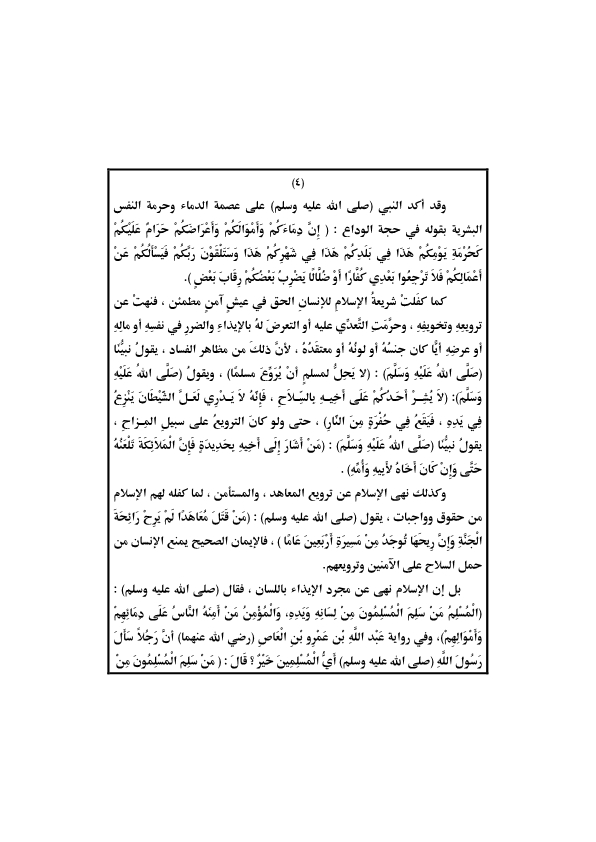 (٤)
وقد أكد النبي (صلى الله عليه وسلم) على عصمة الدماء وحرمة النفس
البشرية بقوله في حجة الوداع : ( إِنَّ دِمَاءَكُمْ وَأَمْوَالَكُمْ وَأَعْرَاضَكُمْ حَرَامٌ عَلَيْكُمْ
كَحُرْمَةِ يَوْمِكُمْ هَذَا فِي بَلَدِكُمْ هَذَا فِي شَهْرِكُمْ هَذَا وَسَتَلْقَوْنَ رَبَّكُمْ فَيَسْأَلُكُمْ عَنْ
أَعْمَالِكُمْ فَلاَ تَرْجِعُوا بَعْدِي كُفَّارًا أَوْ ضُلَّالًا يَضْرِبُ بَعْضُكُمْ رِقَابَ بَعْضٍ ).
كما كفَلتْ شريعةُ الإسلامِ للإنسانِ الحق في عيشٍ آمنٍ مطمئن ، فنهتْ عن
ترويعِهِ وتخويفِهِ ، وحرَّمَتِ التَّعدِّي عليه أو التعرضَ لهُ بالإيذاءِ والضررِ في نفسِهِ أو مالِهِ
أو عرضِهِ أيًّا كان جنسُهُ أو لونُهُ أو معتقدُهُ ، لأنَّ ذلكَ من مظاهر الفساد ، يقولُ نبيُّنَا
(صَلَّى اللهُ عَلَيْهِ وَسَلَّمَ) : (لا يَحِلُّ لمسلمٍ أنْ يُرَوِّعَ مسلمًا) ، ويقولُ (صَلَّى اللهُ عَلَيْهِ
وَسَلَّمَ): (لاَ يُشِـرْ أَحَدُكُمْ عَلَى أَخِيـهِ بِالسِّـلاَحِ ، فَإِنَّهُ لاَ يَـدْرِي لَعَـلَّ الشَّيْطَانَ يَنْزِعُ
فِي يَدِهِ ، فَيَقَعُ فِي حُفْرَةٍ مِنَ النَّارِ) ، حتى ولو كانَ الترويعُ على سبيلِ المِـزاحِ ،
يقولُ نبيُّنَا (صَلَّى اللهُ عَلَيْهِ وَسَلَّمَ) : (مَنْ أَشَارَ إِلَى أَخِيهِ بِحَدِيدَةٍ فَإِنَّ الْمَلاَئِكَةَ تَلْعَنُهُ
حَتَّى وَإِنْ كَانَ أَخَاهُ لأَبِيهِ وَأُمِّهِ) .
وكذلك نهى الإسلام عن ترويع المعاهد ، والمستأمن ، لما كفله لهم الإسلام
من حقوق وواجبات ، يقول (صلى الله عليه وسلم) : (مَنْ قَتَلَ مُعَاهَدًا لَمْ يَرِحْ رَائِحَةَ
الْجَنَّةِ وَإِنَّ رِيحَهَا تُوجَدُ مِنْ مَسِيرَةِ أَرْبَعِينَ عَامًا ) ، فالإيمان الصحيح يمنع الإنسان من
حمل السلاح على الآمنين وترويعهم.
بل إن الإسلام نهى عن مجرد الإيذاء باللسان ، فقال (صلى الله عليه وسلم) :
(الْمُسْلِمُ مَنْ سَلِمَ الْمُسْلِمُونَ مِنْ لِسَانِهِ وَيَدِهِ، وَالْمُؤْمِنُ مَنْ أَمِنَهُ النَّاسُ عَلَى دِمَائِهِمْ
وَأَمْوَالِهِمْ)، وفي رواية عَبْد اللَّهِ بْن عَمْرِو بْنِ الْعَاصِ (رضي الله عنهما) أنَّ رَجُلاً سَأَلَ
رَسُولَ اللَّهِ (صلى الله عليه وسلم) أَيُّ الْمُسْلِمِينَ خَيْرٌ ؟ قَالَ : ( مَنْ سَلِمَ الْمُسْلِمُونَ مِنْ